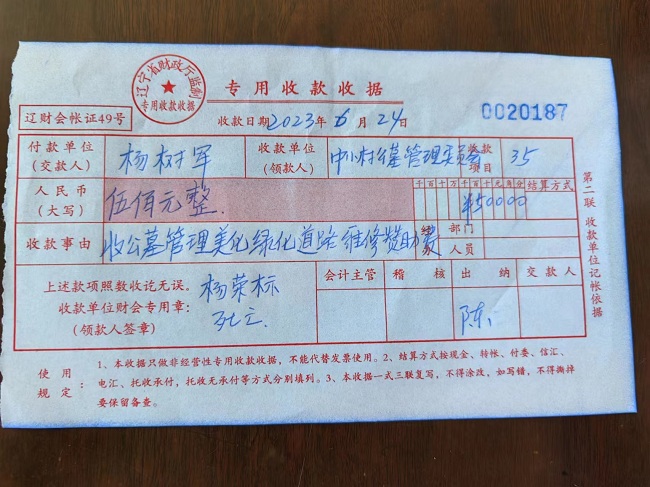 辽宁省财政厅监制
专用收款收据
专用收款收据
辽财会帐证49号
收款日期 2023年 6月 24日
0020187
付款单位 (交款人) 杨树军 收款单位 (领款人) 中小村公墓管理委员会 收款项目 35
人民币 (大写) 伍佰元整. 千百十万千百十元角分 结算方式
¥50000
收款事由 收公墓管理美化绿化道路维修赞助费 经办 部门 人员
上述款项照数收讫无误。 杨荣标 会计主管 稽核 出纳 交款人
收款单位财会专用章:
(领款人签章) 陈
第二联 收款单位记帐依据
使用规定: 1、本收据只做非经营性专用收款收据,不能代替发票使用。2、结算方式按现金、转帐、付委、信汇、
电汇、托收承付,托收无承付等方式分别填列。3、本收据一式三联复写,不得涂改,如写错,不得撕掉
要保留备查。